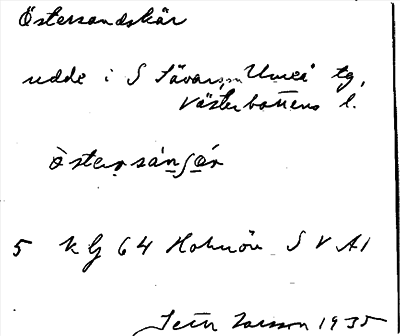 Östersandskär
udde i S Sävar sn, Umeå tg,
Västerbottens l.
òstersánʃǽr
5 kG 64 Holmön S V A1
Setn Larsson 1935